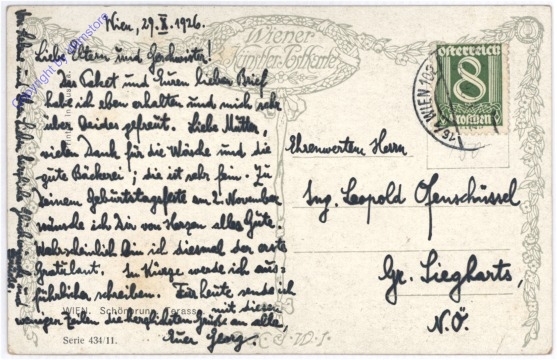 Wien, 29.X.1926.
Liebe Eltern und Geschwister!
Das Paket und Euren lieben Brief
habe ich eben erhalten und mich sehr
über beides gefreut. Liebe Mutter,
vielen Dank für die Wäsche und die
gute Bäckerei; die ist sehr fein. Zu
Deinem Geburtstagsfeste am 2. November
wünsche ich Dir von Herzen alles Gute.
Wahrscheinlich bin ich diesmal der erste
Gratulant. In Kürze werde ich aus-
führlicher schreiben. Für heute sende ich
mit diesen
wenigen Zeilen die herzlichsten Grüße an alle,
Euer Georg.
WIEN. Schönbrunn, Terasse
Serie 434/11.
Wiener
Künstler-Postkarte
österreich
8
Groschen
WIEN
Ehrenwerten Herrn
Ing. Leopold Ofenschüssel
Gr. Siegharts,
N.Ö.
Copyright by